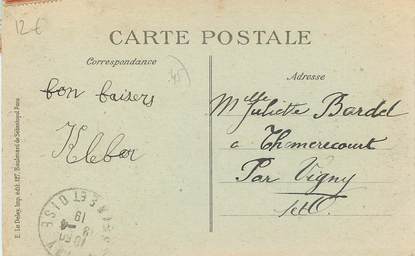 12€
CARTE POSTALE
Correspondance
Adresse
bon baisers
Kleber
Melle Juliette Bardel
a Themericourt
Par Vigny
S et O.
E. Le Deley, Imp. édit. 127, Boulevard de Sébastopol Paris
SEINE ET OISE